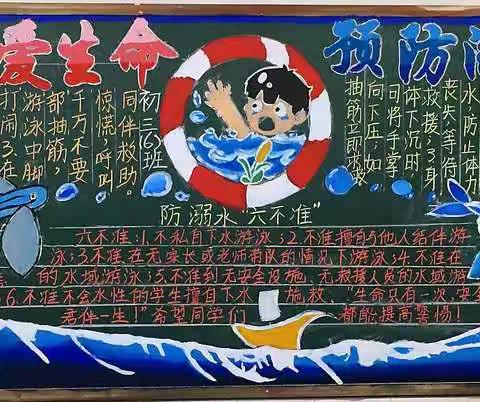 爱生命
预防溺
初三(6)班
同伴救助。
惊慌,呼叫
千万不要
部抽筋,
游泳中脚
打闹。3.在
水,防止体力
丧失等待
救援;3.身
体下沉时
可将手掌
向下压,如
抽筋立即求救
防溺水"六不准"
六不准:1.不私自下水游泳;2.不准擅自与他人结伴游
泳;3.不准在无家长或老师带队的情况下游泳;4.不准在
的水域游泳;5.不准到无安全设施、无救援人员的水域游
6.不准不会水性的学生擅自下水施救、"生命只有一次,安全
君伴一生!"希望同学们都能提高警惕!